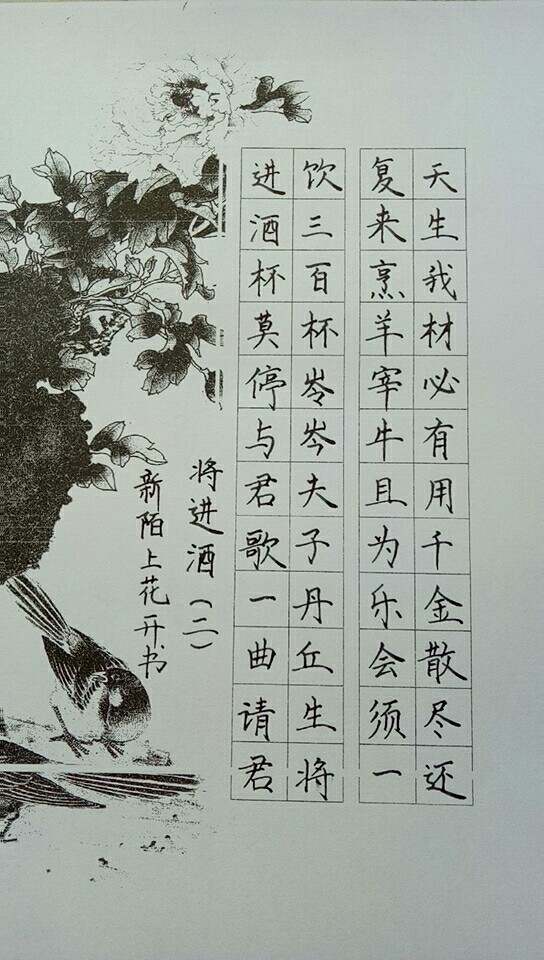 天生我材必有用千金散尽还
复来烹羊宰牛且为乐会须一
饮三百杯岺岑夫子丹丘生将
进酒杯莫停与君歌一曲请君
将进酒（二）
新陌上花开书